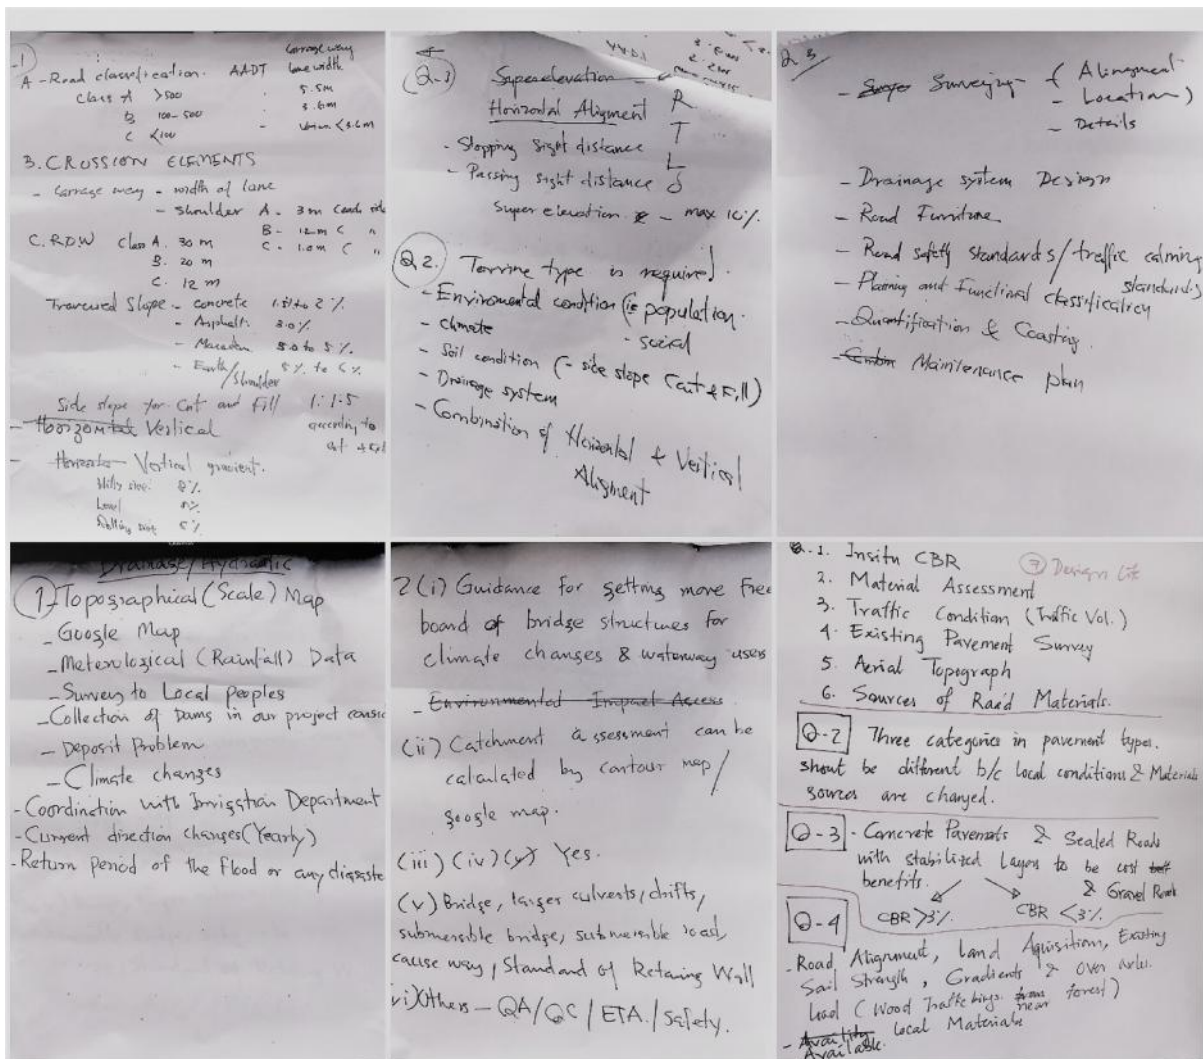 -1
Carrage way
A - Road classification. AADT lane width.
Class A >500 5.5m
B 100-500 3.6m
C <100 - <3.6m
B. CROSSION ELEMENTS
- Carrage way - width of lane
- Shoulder A - 3m (each side
B - 1.2m ( "
C - 1.0m ( "
C. ROW Class A. 30 m
B. 20 m
C. 12 m
Traversed Slope - concrete 1.5 to 2 %.
- Asphalt: 3.0%.
- Macadam 3.0 to 5 %.
- Earth/Shoulder 5 % to 6 %.
Side slope for Cut and Fill 1: 1.5
according to
cut & fill
- Horizontal Vertical
- Vertical gradient.
Hilly 8%.
Level
Rolling 5 %.
Q-1
Superelevation
Horizontal Aligment
R
T
L
S
- Stopping sight distance
- Passing sight distance
Super elevation - max 10%.
Q 2. Terrine type is required.
- Enviromental condition (ie population.
- social
- Climate
- Soil condition (- side slope (cut & Fill)
- Drainage system
- Combination of Horizontal & Vertical
Aligment
Q 3
- Surveying - ( Alingment
- Location)
- Details
- Drainage system Design
- Road Furniture
- Road safety standards/traffic calming
standards
- Planning and Functional classification
- Quantification & Coasting.
- Maintenance plan
Drainage/Hydraulic
1- Topographical (Scale) Map
- Google Map
- Meterological (Rainfall) Data
- Survey to Local peoples
- Collection of Dams in our project
- Deposit Problem
- Climate changes
- Coordination with Irrigation Department
- Current direction changes (Yearly)
- Return period of the flood or any
2 (i) Guidance for setting move free
board of bridge structures for
climate changes & waterway users
- Environmental Impact Access
(ii) Catchment assessment can be
calculated by contour map/
google map.
(iii) (iv) (v) Yes.
(v) Bridge, larger culverts, drifts,
submersible bridge, submersible road,
cause way, Standard of Retaning Wall
vi) Others - QA/QC / ETA./ Safety.
Q.1. Insitu CBR
⑦ Design Life
2. Material Assessment
3. Traffic Condition (Traffic Vol.)
4. Existing Pavement Survey
5. Aerial Topograph
6. Sources of Raod Materials.
Q-2 Three categories in pavement types.
be different b/c local conditions & Materials
sources are changed.
Q-3 - Concrete Pavements & Sealed Roads
with stabilized Layers to be cost
benefits.
& Gravel Road
CBR >3%. CBR <3%.
Q-4
- Road Alignment, Land Aquisition, Existing
Soil Strength, Gradients & Over
load (Wood near forest)
- Local Materials
Available.